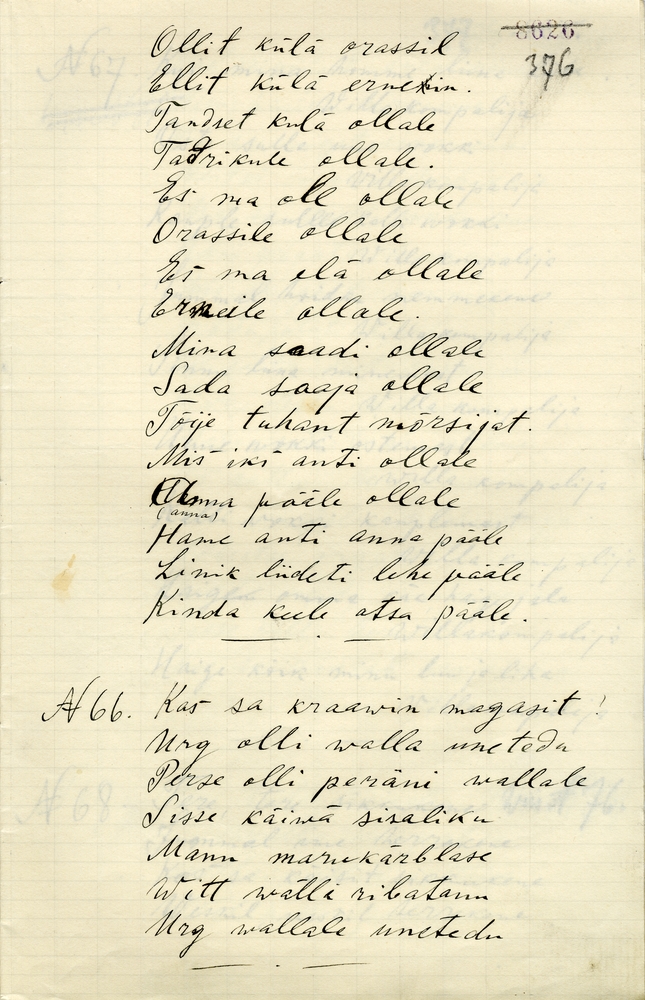 8626
376
Ollit külä orassil
Ellit külä ernekin.
Tandset kulä ollale
Tadrikule ollale.
Es ma ole ollale
Orassile ollale
Es ma elä ollale
Erneile ollale.
Mina saadi ollale
Sada saaja ollale
Tõije tuhant mõrsijat.
Mis iks anti ollale
Anna pääle ollale
(anna)
Hame anti anna pääle
Linik liideti lehe pääle
Kinda keele otsa pääle.
N 66. Kas sa kraawin magasit!
Urg olli walla unetedu
Perse olli peräni wallale
Sisse käiwä sisaliku
Mann marukärblase
Witt wälli ribatanu
Urg wallale unetedu